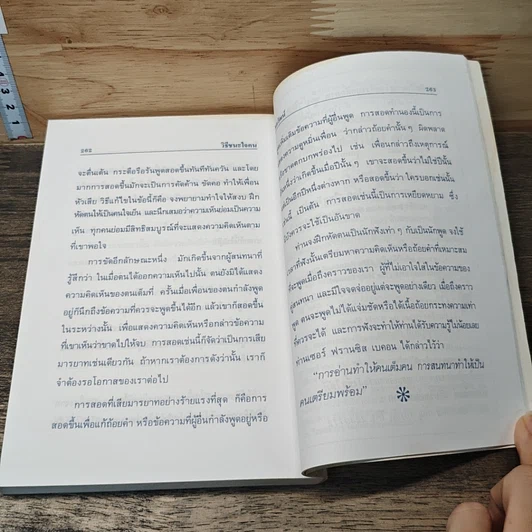 ๖๒๒ วิธีชนะใจคน
จะตื่นเต้น กระตือรือร้นพูดสอดขึ้นทันทีทันควัน และโดย
มากการสอดขึ้นมักจะเป็นการคัดค้าน ขัดคอ ทำให้เพื่อน
หัวเสีย วิธีแก้ไขในข้อนี้ก็คือ จงพยายามทำใจให้สงบ ฝึก
หัดตนให้เป็นคนใจเย็น และนึกเสมอว่าความเห็นย่อมเป็นความ
เห็น ทุกคนย่อมมีสิทธิสมบูรณ์ที่จะแสดงความคิดเห็นตาม
ที่เขาพอใจ
การขัดอีกลักษณะหนึ่ง มักเกิดขึ้นจากผู้สนทนาที่
รู้สึกว่า ในเมื่อตนได้ออกความเห็นไปนั้น ตนยังมิได้แสดง
ความคิดเห็นของตนเต็มที่ ครั้นเมื่อเพื่อนของตนกำลังพูด
อยู่ก็นึกถึงข้อความที่ควรจะพูดขึ้นได้อีก แล้วเขาก็สอดขึ้น
ในระหว่างนั้น เพื่อแสดงความคิดเห็นหรือกล่าวข้อความ
ที่เขาเห็นว่าขาดไปให้จบ การสอดเช่นนี้ก็จัดว่าเป็นการเสีย
มารยาทเช่นเดียวกัน ถ้าหากเราต้องการดังว่านั้น เราก็
จำต้องรอโอกาสของเราต่อไป
การสอดที่เสียมารยาทอย่างร้ายแรงที่สุด ก็คือการ
สอดขึ้นเพื่อแก้ถ้อยคำ หรือข้อความที่ผู้อื่นกำลังพูดอยู่หรือ
เติมข้อความที่ผู้อื่นพูด การสอดทำนองนี้เป็นการ
ความดูหมิ่นเพื่อน ว่ากล่าวถ้อยคำนั้น ๆ ผิดพลาด
ตกบกพร่องไป เช่น เพื่อนกล่าวถึงเหตุการณ์
ว่าเกิดขึ้นเมื่อปีนั้น ๆ เขาจะสอดขึ้นว่าไม่ใช่ปีนั้น
อีกปีหนึ่งต่างหาก หรือสอดขึ้นว่า ใครบอกเช่นนั้น
เป็นต้น การสอดเช่นนี้เป็นการเหยียดหยาม ซึ่ง
ควรจะใช้เป็นอันขาด
ท่านจงฝึกหัดตนเป็นนักฟังเท่า ๆ กับเป็นนักพูด จงใช้
เวลาที่ฟังนั้นเตรียมหาความคิดเห็นหรือถ้อยคำที่เหมาะสม
จะพูดเมื่อถึงคราวของเรา ผู้ที่ไม่เอาใจใส่ในข้อความของ
สนทนา และมีใจจดจ่ออยู่แต่จะพูดอย่างเดียว เมื่อถึงคราว
พูด ตนจะพูดไม่ได้แจ่มชัดหรือได้เนื้อถ้อยกระทงความเท่า
ควรจะได้ และการฟังจะทำให้ท่านได้รับความรู้ไม่น้อยเลย
ท่านเซอร์ ฟรานซิส เบคอน ได้กล่าวไว้ว่า
“การอ่านทำให้คนเต็มคน การสนทนาทำให้เป็น
คนเตรียมพร้อม”